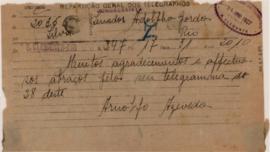 REPARTIÇÃO GERAL DOS TELEGRAPHOS
Senador Adolpho Gordo
Rio
347 17 20/10
Muitos agradecimentos e affectuo
sos abraços pelos seu telegramma de
28 deste
Arnolfo Azevedo